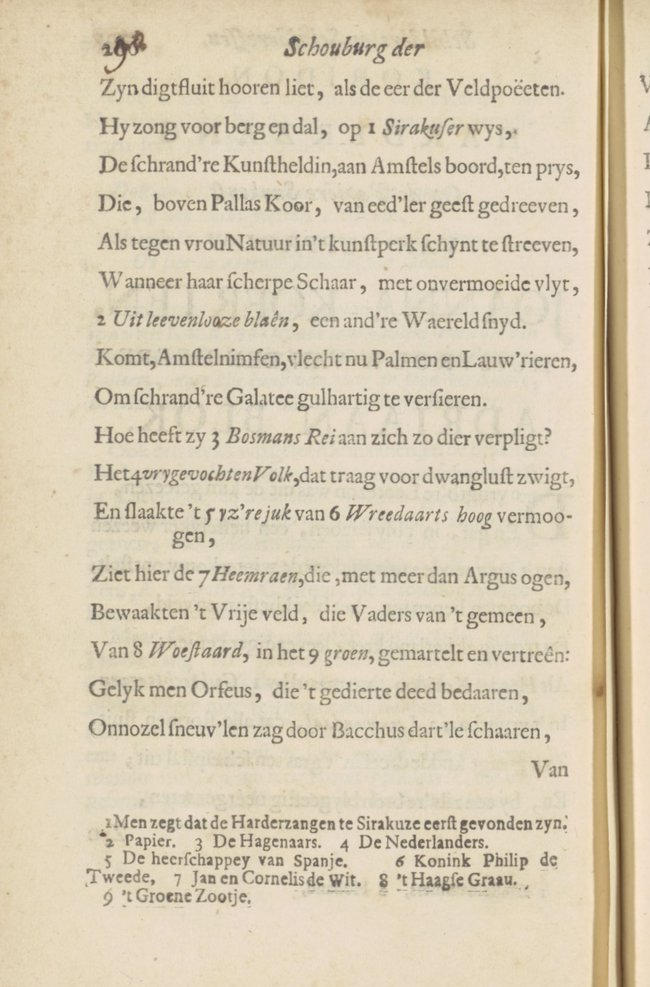 298 Schouburg der
Zyn digtfluit hooren liet, als de eer der Veldpoëeten.
Hy zong voor berg en dal, op 1 Sirakuser wys,
De schrand're Kunstheldin, aan Amstels boord, ten prys,
Die, boven Pallas Koor, van eed'ler geest gedreeven,
Als tegen vrou Natuur in't kunstperk schynt te streeven,
Wanneer haar scherpe Schaar, met onvermoeide vlyt,
2 Uit leevenlooze blaên, een and're Waereld snyd.
Komt, Amstelnimfen, vlecht nu Palmen en Lauw'rieren,
Om schrand're Galatee gulhartig te versieren.
Hoe heeft zy 3 Bosmans Rei aan zich zo dier verpligt?
Het 4 vrygevochten Volk, dat traag voor dwanglust zwigt,
En slaakte 't 5 yz're juk van 6 Wreedaarts hoog vermoo-
gen,
Ziet hier de 7 Heemraen, die, met meer dan Argus ogen,
Bewaakten 't Vrije veld, die Vaders van 't gemeen,
Van 8 Woestaard, in het 9 groen, gemartelt en vertreên:
Gelyk men Orfeus, die 't gedierte deed bedaaren,
Onnozel sneuv'len zag door Bacchus dart'le schaaren,
Van
1 Men zegt dat de Harderzangen te Sirakuze eerst gevonden zyn.
2 Papier. 3 De Hagenaars. 4 De Nederlanders.
5 De heerschappey van Spanje. 6 Konink Philip de
Tweede, 7 Jan en Cornelis de Wit. 8 't Haagse Graau.
9 't Groene Zootje.